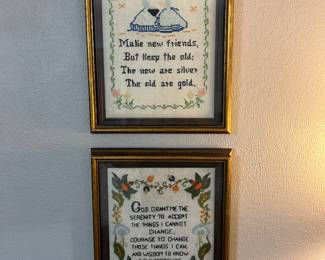 Make new friends,
But keep the old:
The new are silver
The old are gold.
God grant me the
serenity to accept
the things I cannot
change,
courage to change
those things I can,
and wisdom to know